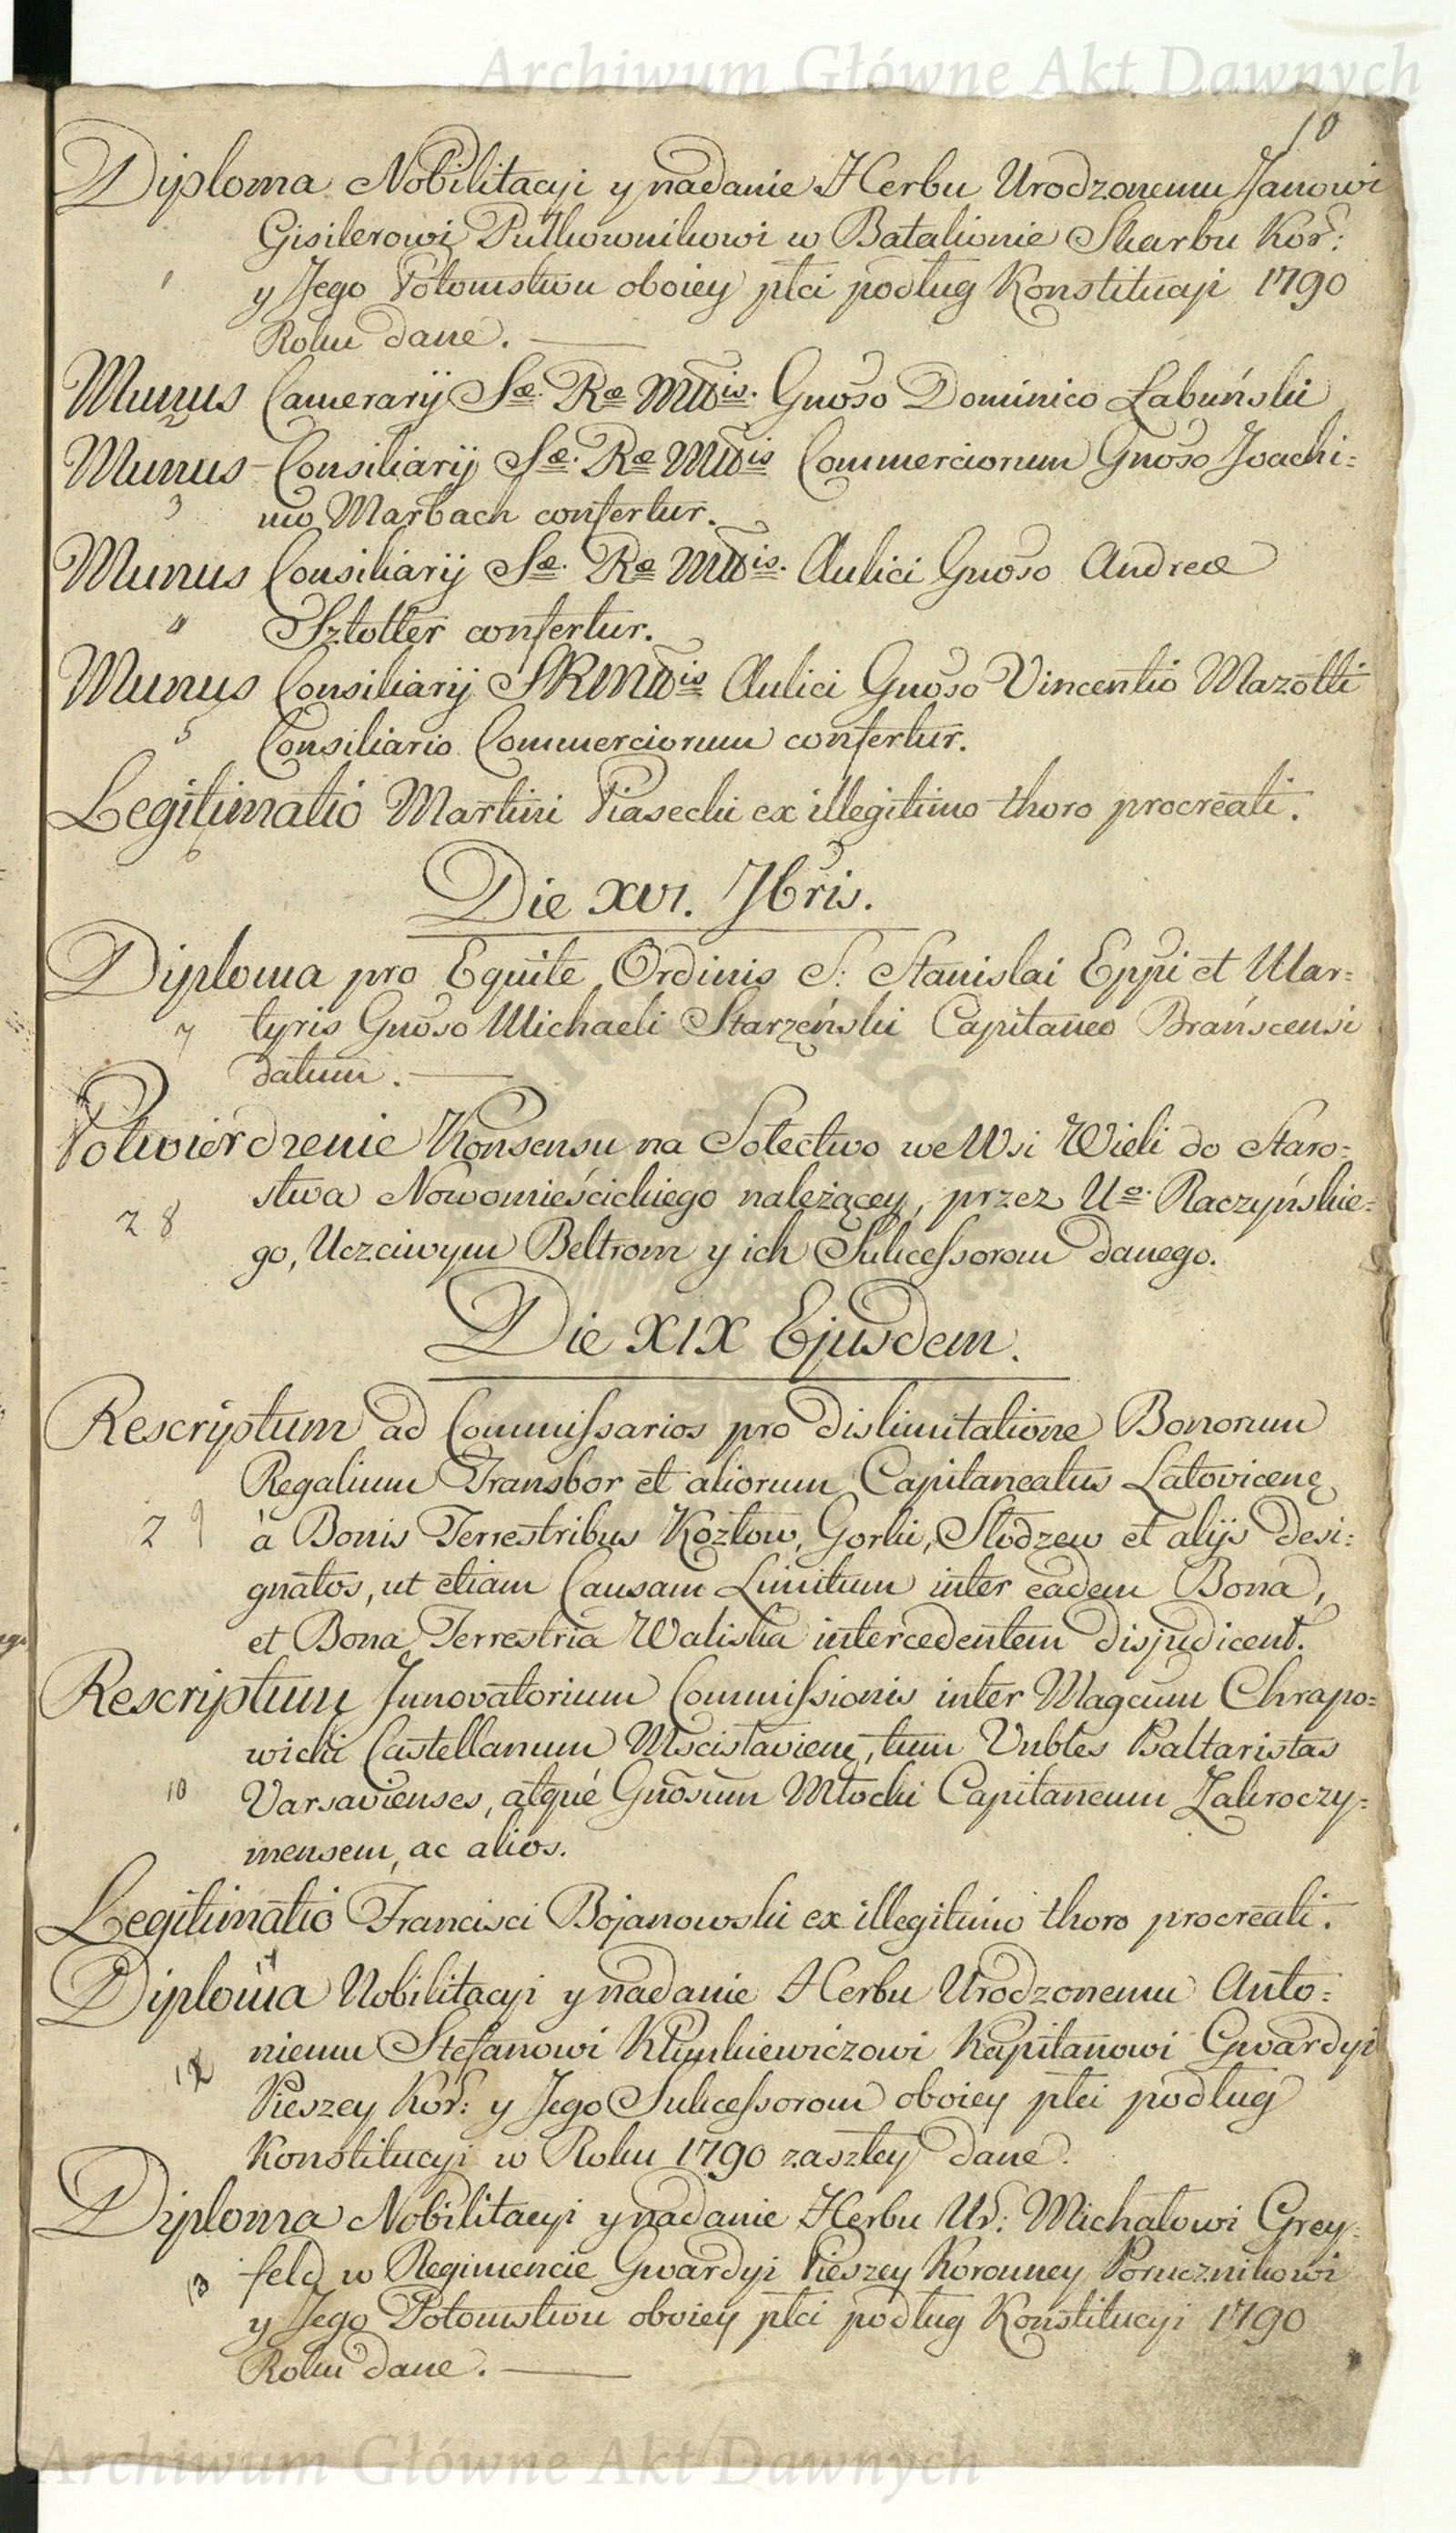 Archiwum Główne Akt Dawnych
10
Diploma Nobilitacyi y nadanie Herbu Urodzonemu Janowi
Gisilerowi Pułkownikowi w Batalionie Skarbu Kor:
1 y Jego Potomstwu oboiey płci podług Konstitucyi 1790
Roku dane.
Munus Camerarij Sæ. Ræ Mttis. Gnoso Dominico Łabuński
2
Munus Consiliarij Sæ. Ræ Mttis Commerciorum Gnoso Joachi=
3 mo Marbach confertur.
Munus Consiliarij Sæ. Ræ Mttis. Aulici Gnoso Andreæ
4 Sztolter confertur.
Munus Consiliarij SRMttis Aulici Gnoso Vincentio Mazotti
5 Consiliario Commerciorum confertur.
Legitimatio Martini Piasecki ex illegitimo thoro procreati.
6
Die XVI. 7bris.
Diploma pro Equite Ordinis S: Stanislai Eppi et Mar=
7 tyris Gnoso Michaeli Starzeński Capitaneo Brańscensi
datum.
Potwierdzenie Konsensu na Sołectwo we Wsi Wieli do Staro=
stwa Nowomieścickiego należącey, przez Uo. Raczyńskie=
2 8
go, Uczciwym Beltrom y ich Sukcessorom danego.
Die XIX Ejusdem.
Rescriptum ad Commissarios pro dislimitatione Bonorum
Regalium Transbor et aliorum Capitaneatus Latovicenę
2 9 à Bonis Terrestribus Kozłow, Gorki, Słodzew et alijs desi=
gnatos, ut etiam Causam Limitum inter eadem Bona,
et Bona Terrestria Waliska intercedentem disjudicent.
Rescriptum Innovatorium Commissionis inter Magcum Chrapo=
wicki Castellanum Mscislavienę, tum Vnbles Baltaristas
10 Varsavienses, atque Gnosum Młocki Capitaneum Zakroczy=
mensem, ac alios.
Legitimatio Francisci Bojanowski ex illegitimo thoro procreati.
11
Diploma Nobilitacyi y nadanie Herbu Urodzonemu Anto=
12 niemu Stefanowi Klimkiewiczowi Kapitanowi Gwardyi
Pieszey Kor: y Jego Sukcessorom oboiey płci podług
Konstitucyi w Roku 1790 zaszłey dane.
Diploma Nobilitacyi y nadanie Herbu Ur: Michałowi Grey=
13 feld w Regimencie Gwardyi Pieszey Koronney Porucznikowi
y Jego Potomstwu oboiey płci podług Konstitucyi 1790
Roku dane.
Archiwum Główne Akt Dawnych